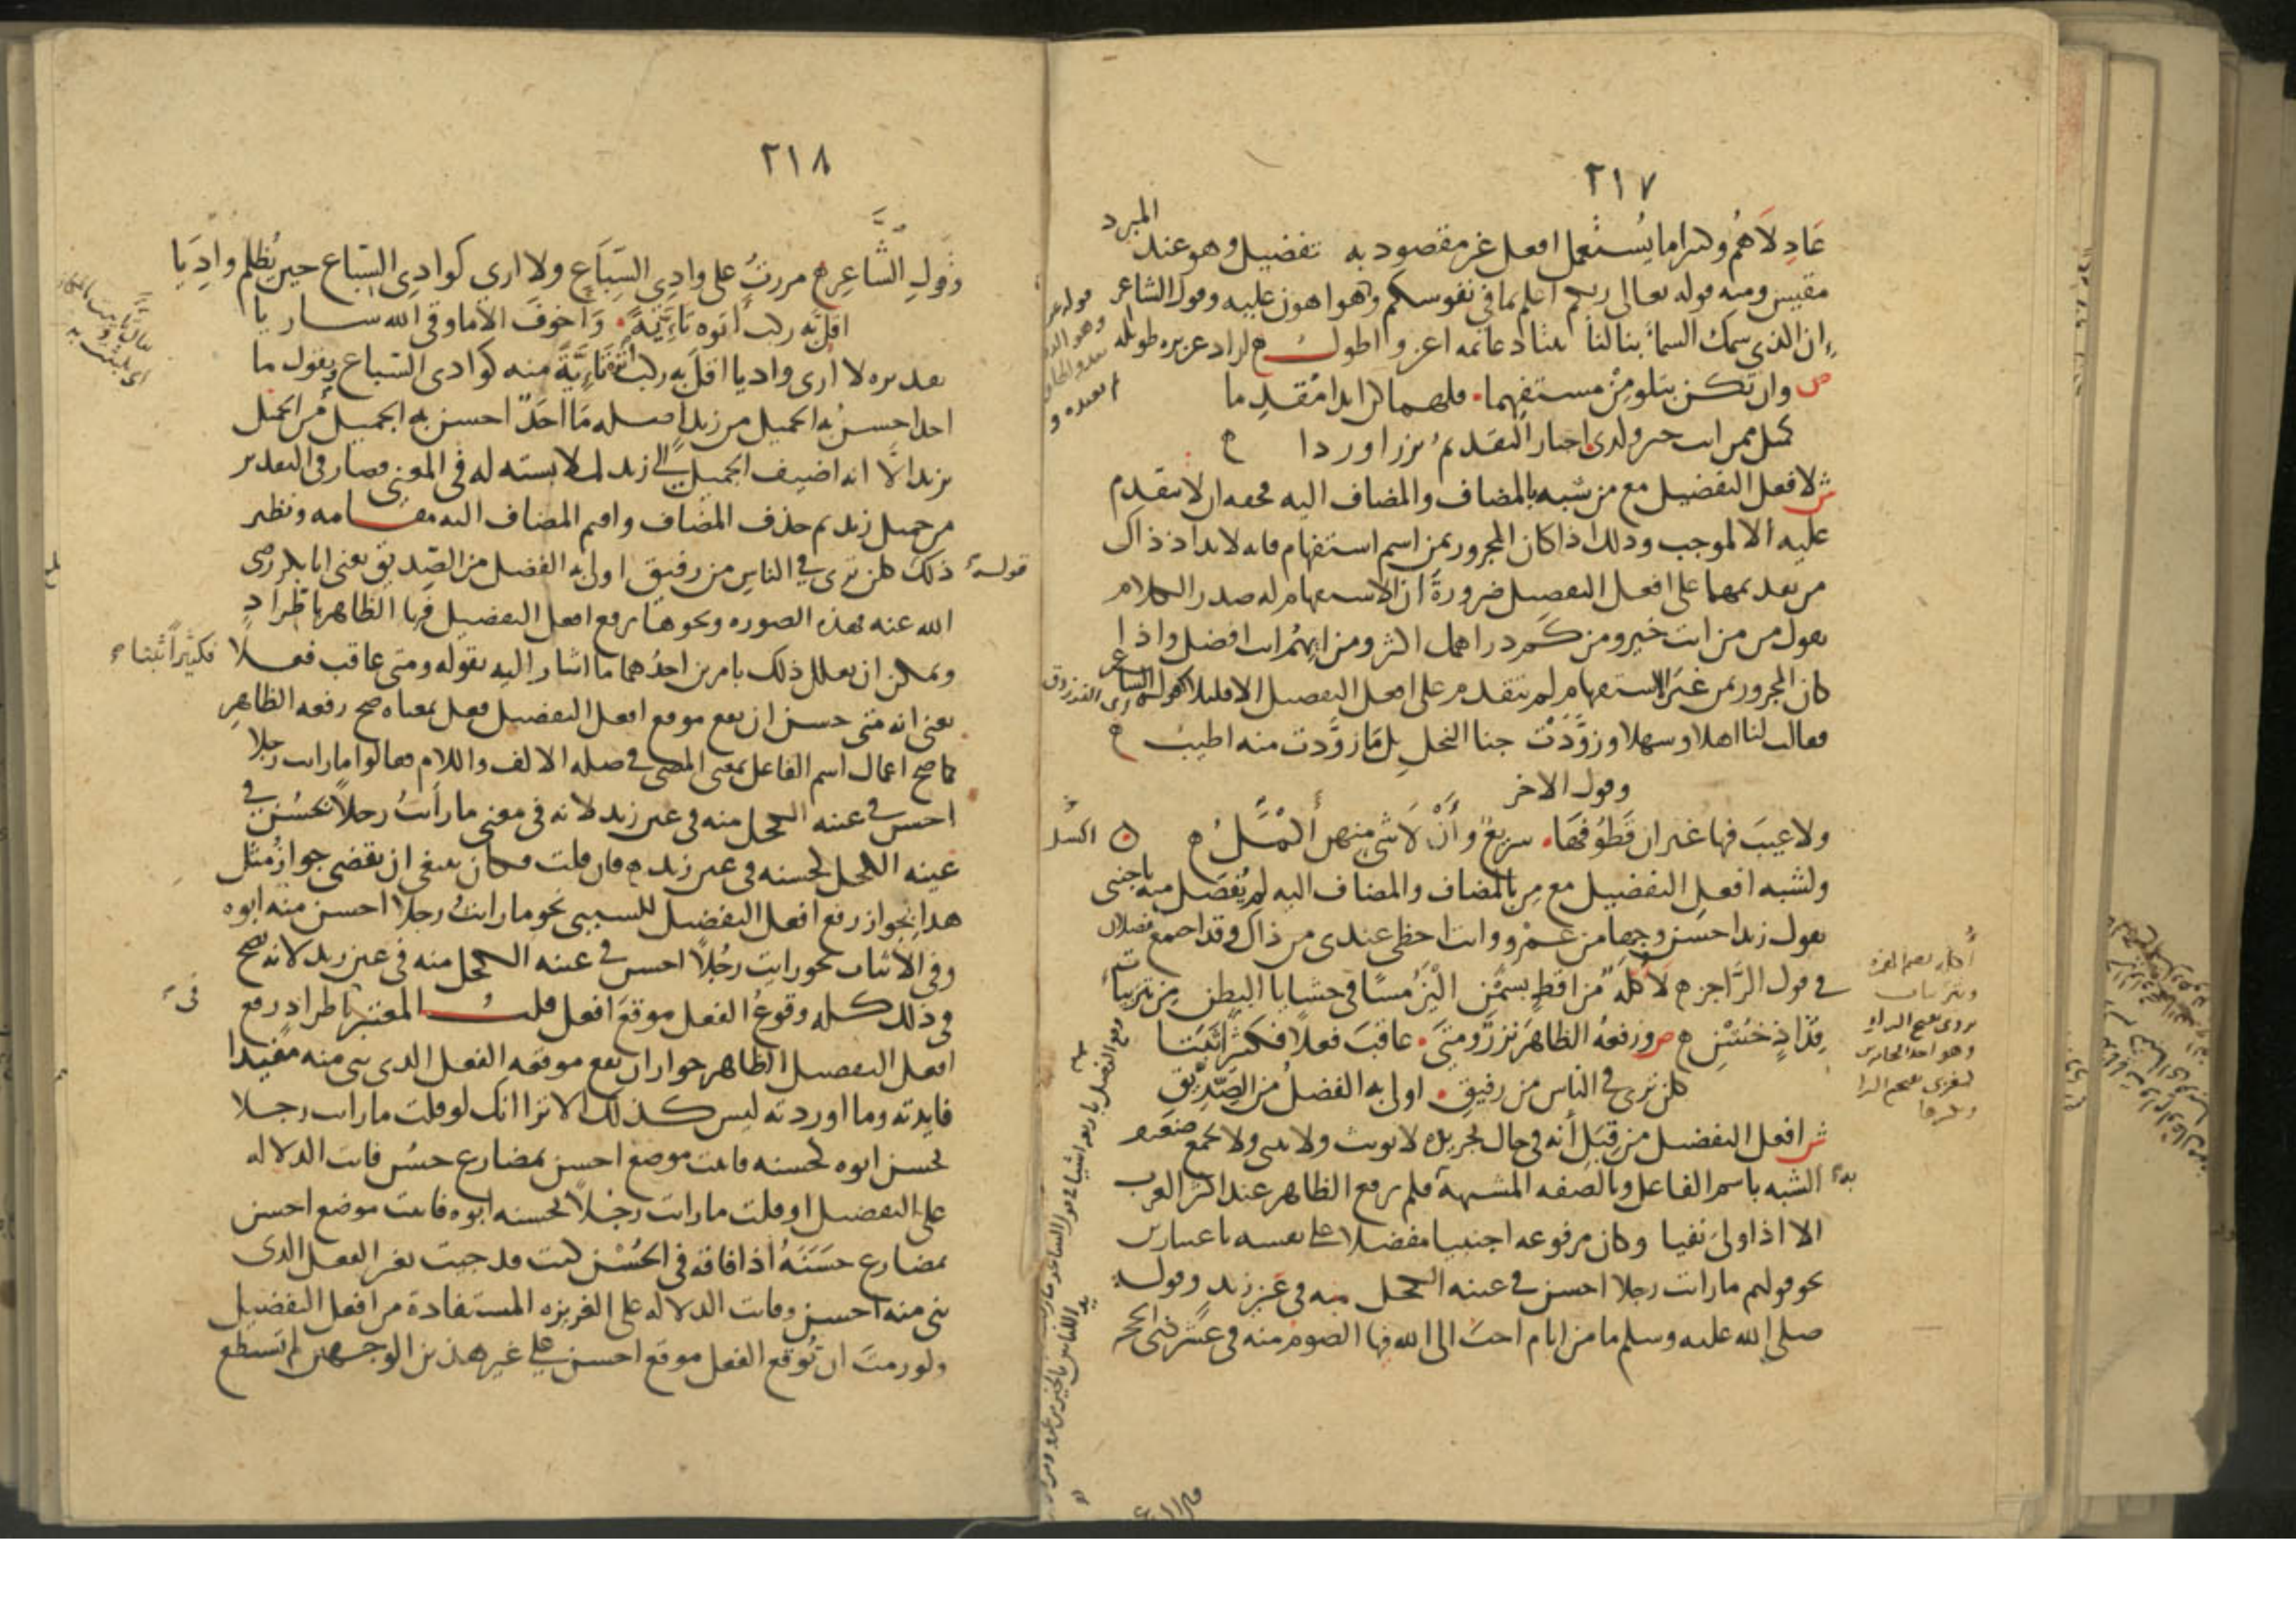 ٢١٧
عَادِلَاهُمُ وكثيرا ما يُستعمل افعل غير مقصود به تفضيل وهو عند المبرد
مقيس ومنه قوله تعالى ربكم اعلم بما في نفوسكم وهو اهون عليه وقول الشاعر
ان الذي سمك السماء بنا لنا بيتا دعائمه اعز واطول اراد عزيزه طويله
ص وان تكن بتلو مِنْ مستفهما فلهما كن ابدا مُقدِما
كمثل ممن انت خير ولدى اخبار التقديم نزرا وردا
ش لافعل التفضيل مع من شبه بالمضاف والمضاف اليه فحقه ان لا يتقدم
عليه الا لموجب وذلك اذا كان المجرور بمن اسم استفهام فانه لابد اذ ذاك
من تقديمهما على افعل التفضيل ضرورة ان الاستفهام له صدر الكلام
تقول من من انت خير ومن كم دراهمك اكثر ومن ايهم انت افضل واذا
كان المجرور بمن غير الاستفهام لم يتقدم على افعل التفضيل الا قليلا كقول الشاعر
فقالت لنا اهلا وسهلا وزوَّدَتْ جنا النحل بل ما زوَّدت منه اطيب
وقول الاخر
ولا عيبَ فيها غير ان قَطُوفَها سريعٌ وأنْ لا شي منهن أكسلُ
ولشبه افعل التفضيل مع من بالمضاف والمضاف اليه لم يُفصَل منه باجنبي
تقول زيد احسن وجها من عمرو وانت احظى عندي من ذاك وقد اجتمع فصلان
في قول الرَّاجز لَأُكلَةٌ من اقطٍ بسمْنِ الْيَنُ مسًّا في حشايا البطن من يثربيات
قِذَاذٍ خُشْنِ ص ورفعُه الظاهرَ نزرٌ ومتى عاقبَ فعلًا فكثيرًا ثَبتا
كلن ترى في الناس من رفيقِ اولى به الفضلُ من الصِّدِّيق
ش افعل التفضيل من قِبَل أنه في حال تجريده لا يونث ولا يثنى ولا يجمع ضعيف
الشبه باسم الفاعل وبالصفه المشبهة فلم يرفع الظاهر عند اكثر العرب
الا اذا ولى نفيا وكان مرفوعه اجنبيا مفضلا على نفسه باعتبارين
نحو قولهم ما رايت رجلا احسن في عينه الكحل منه في عين زيد وقوله
صلى الله عليه وسلم ما من ايام احب الى الله فيها الصوم منه في عشر ذي الحجه
٢١٨
وقولِ الشَّاعِرِ مررتُ على وادي السِّبَاع ولا ارى كوادي السِّباع حين يُظلم وادِيَا
اقلَّ به ركب أتوه تَئِيَّةً وَأخوفَ الا ما وقى الله ساريا
تقديره لا ارى واديا اقل به ركب أتوه تَئِيَّةً منه كوادي السباع ويقول ما
احد احسنُ به الجميل من زيد اصله مَا احَدٌ احسن به الجميل من الجميل
بزيد الَّا انه اضيف الجميل الى زيد لملابسته له في المعنى فصار في التقدير
من جميل زيد ثم حذف المضاف واقيم المضاف اليه مقامه ونظير
ذلك قوله كلن ترى في الناس من رفيق اولى به الفضل من الصديق يعني ابا بكر رضى
الله عنه فهذه الصوره ونحوها يرفع افعل التفضيل فيها الظاهر باطراد
ويمكن ان يعلل ذلك بامرين احدُهما ما اشار اليه بقوله ومتى عاقب فعلا فكثيرًا ثبتا
يعنى انه متى حسن ان يقع موقع افعل التفضيل فعل بمعناه صح رفعه الظاهر
كما صح اعمال اسم الفاعل بمعنى المضى في صله الالف واللام فقالوا ما رايت رجلا
احسن في عينه الكحل منه في عين زيد لانه في معنى ما رأيتُ رجلًا يحسُن في
عينه الكحل كحسنه في عين زيد فان قلت فكان ينبغي ان يقضى جوازُ مثل
هذا بجواز رفع افعل التفضيل للسببي نحو ما رايتُ رجلا احسن منه ابوه
وفي الاثبات نحو رايت رجُلًا احسن في عينه الكحل منه في عين زيد لانه يصح
في ذلك كله وقوعُ الفعل موقعَ افعل قلتُ المعتبر في اطراد رفع
افعل التفضيل الظاهر جواز ان يقع موقعه الفعل الذي بنى منه مفيدا
فايدته وما اوردته ليس كذلك الا ترا انك لو قلت ما رايت رجلا
يحسن ابوه كحسنه فاتيت موضع احسن بمضارع حسُن فاتت الدلاله
على التفضيل او قلت ما رايت رجُلًا يحسنه ابوه فاتيت موضع احسن
بمضارع حَسَنَهُ اذا فاقه في الحُسْن كنت قد جيت بغير الفعل الذى
بنى منه احسن وفاتت الدلاله على الغريزه المستفادة من افعل التفضيل
ولو رمت ان تُوقع الفعل موقع احسن على غير هذين الوجهين لم تستطع